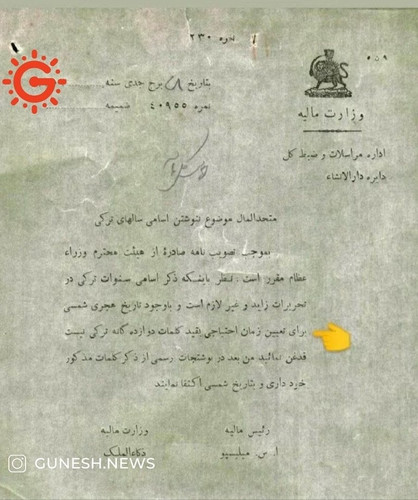 نمره ۲۳۰
۵۵۹
وزارت مالیه
بتاریخ ۸ برج جدی سنه
نمره ۴۰۹۵۵ ضمیمه
اداره مراسلات و ضبط کل
دایره دارالانشاء
متحدالمال موضوع ننوشتن اسامی سالهای ترکی
بموجب تصویب نامه صادرهٔ از هیئت محترم وزراء
عظام مقرر است نظر باینکه ذکر اسامی سنوات ترکی در
تحریرات زاید و غیر لازم است و باوجود تاریخ هجری شمسی
برای تعیین زمان احتیاجی بقید کلمات دوازده گانه ترکی نیست
قدغن نمائید من بعد در نوشتجات رسمی از ذکر کلمات مذکور
خود داری و بتاریخ شمسی اکتفا نمایند
رئیس مالیه
وزارت مالیه
ا. س. میلیسپو
ذکاءالملک
G
GUNESH.NEWS